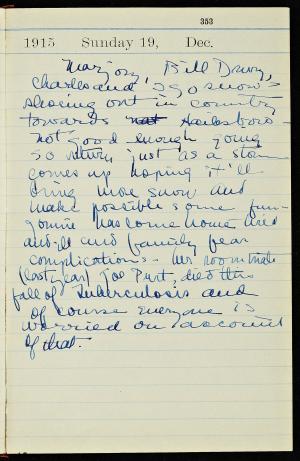 353
1915 Sunday 19, Dec.
Marjory, Bill Drury,
Charles and I go snow-
shoeing out in country
towards Hailsboro -
not good enough going
so return just as a storm
comes up hoping it'll
bring more snow and
make possible some fun -
has come home tired
and ill and family fear
complications. Her roommate
(last year) Joe Purt, died this
fall of Tuberculosis and
of course everyone is
worried on account
of that -